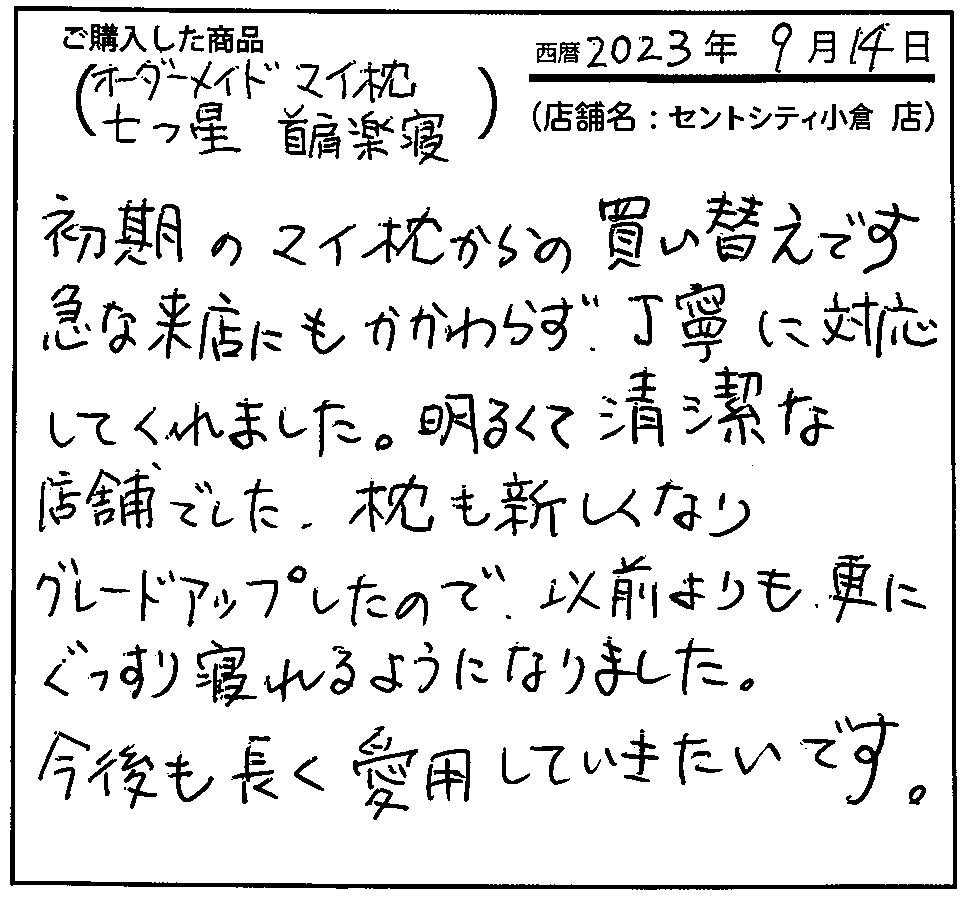 ご購入した商品
(オーダーメイド マイ枕
七つ星 首肩楽寝)
西暦2023年 9月14日
(店舗名：セントシティ小倉 店)
初期のマイ枕からの買い替えです
急な来店にもかかわらず、丁寧に対応
してくれました。明るくて清潔な
店舗でした、枕も新しくなり
グレードアップしたので、以前よりも、更に
ぐっすり寝れるようになりました。
今後も長く愛用していきたいです。